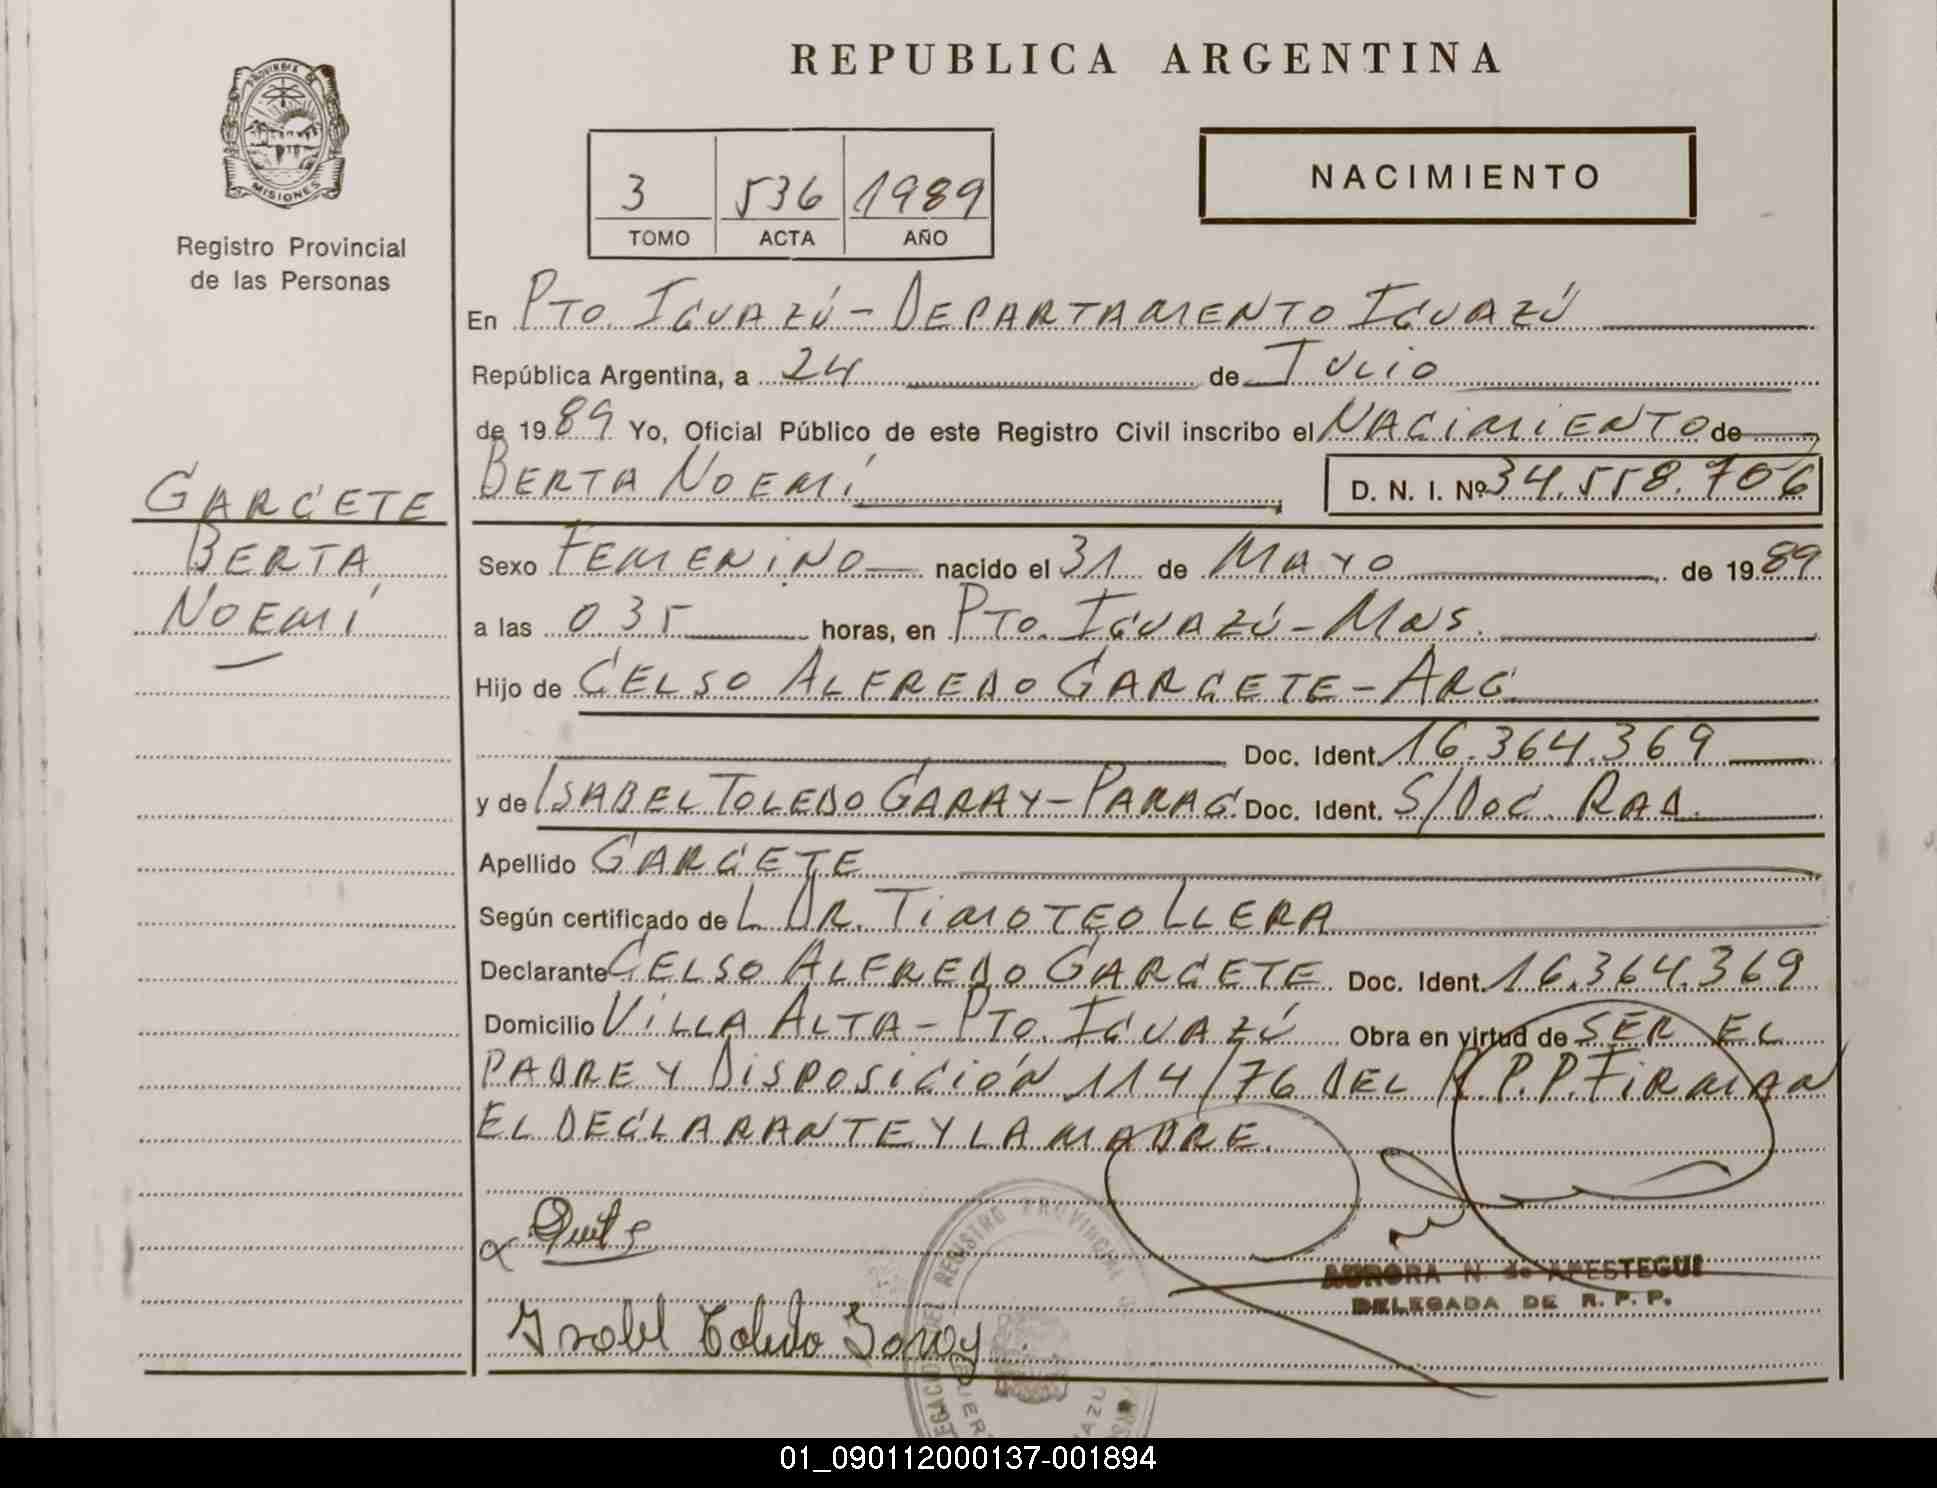 REPUBLICA ARGENTINA
PROVINCIA DE
MISIONES
Registro Provincial
de las Personas
3 536 1989
TOMO ACTA AÑO
NACIMIENTO
En Pto. Iguazú - Departamento Iguazú
República Argentina, a 24 de Julio
de 1989 Yo, Oficial Público de este Registro Civil inscribo el Nacimiento de
Berta Noemí D. N. I. Nº 34.558.706
GARCETE
BERTA
NOEMÍ
Sexo Femenino nacido el 31 de Mayo de 1989
a las 035 horas, en Pto. Iguazú - Mns.
Hijo de Celso Alfredo Garcete - Arg.
Doc. Ident. 16.364.369
y de Isabel Toledo Garay - Parag. Doc. Ident. S/Doc. Rad.
Apellido Garcete
Según certificado de L. Dr. Timoteo Llera
Declarante Celso Alfredo Garcete Doc. Ident. 16.364.369
Domicilio Villa Alta - Pto. Iguazú Obra en virtud de ser el
padre y Disposición 114/76 del R.P.P. Firman
el declarante y la madre.
AURORA N. de APESTEGUI
DELEGADA DE R. P. P.
Isabel Toledo Garay
REGISTRO PROVINCIAL
01_090112000137-001894